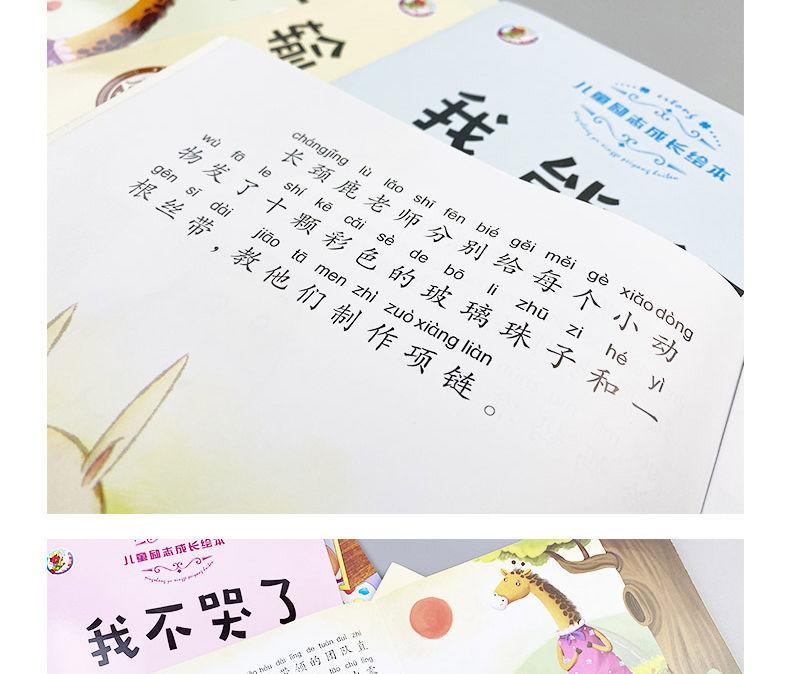 输
我能
儿童励志成长绘本
chángjǐng lù lǎo shī fēn bié gěi měi gè xiǎo dòng
长颈鹿老师分别给每个小动
wù fā le shí kē cǎi sè de bō li zhū zi hé yì
物发了十颗彩色的玻璃珠子和一
gēn sī dài jiāo tā men zhì zuò xiàng liàn
根丝带，教他们制作项链。
儿童励志成长绘本
我不哭了
hóu dài lǐng de tuán duì zhí
带领的团队直